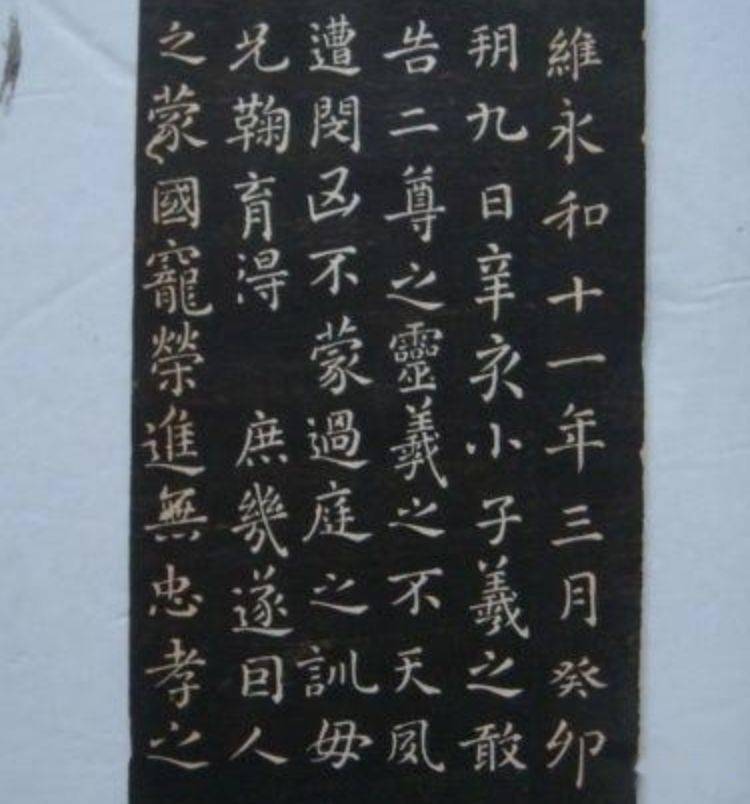 維永和十一年三月癸卯
朔九日辛亥小子羲之敢
告二尊之靈羲之不天夙
遭閔凶不蒙過庭之訓毋
兄鞠育得 庶幾遂因人
之蒙國寵榮進無忠孝之